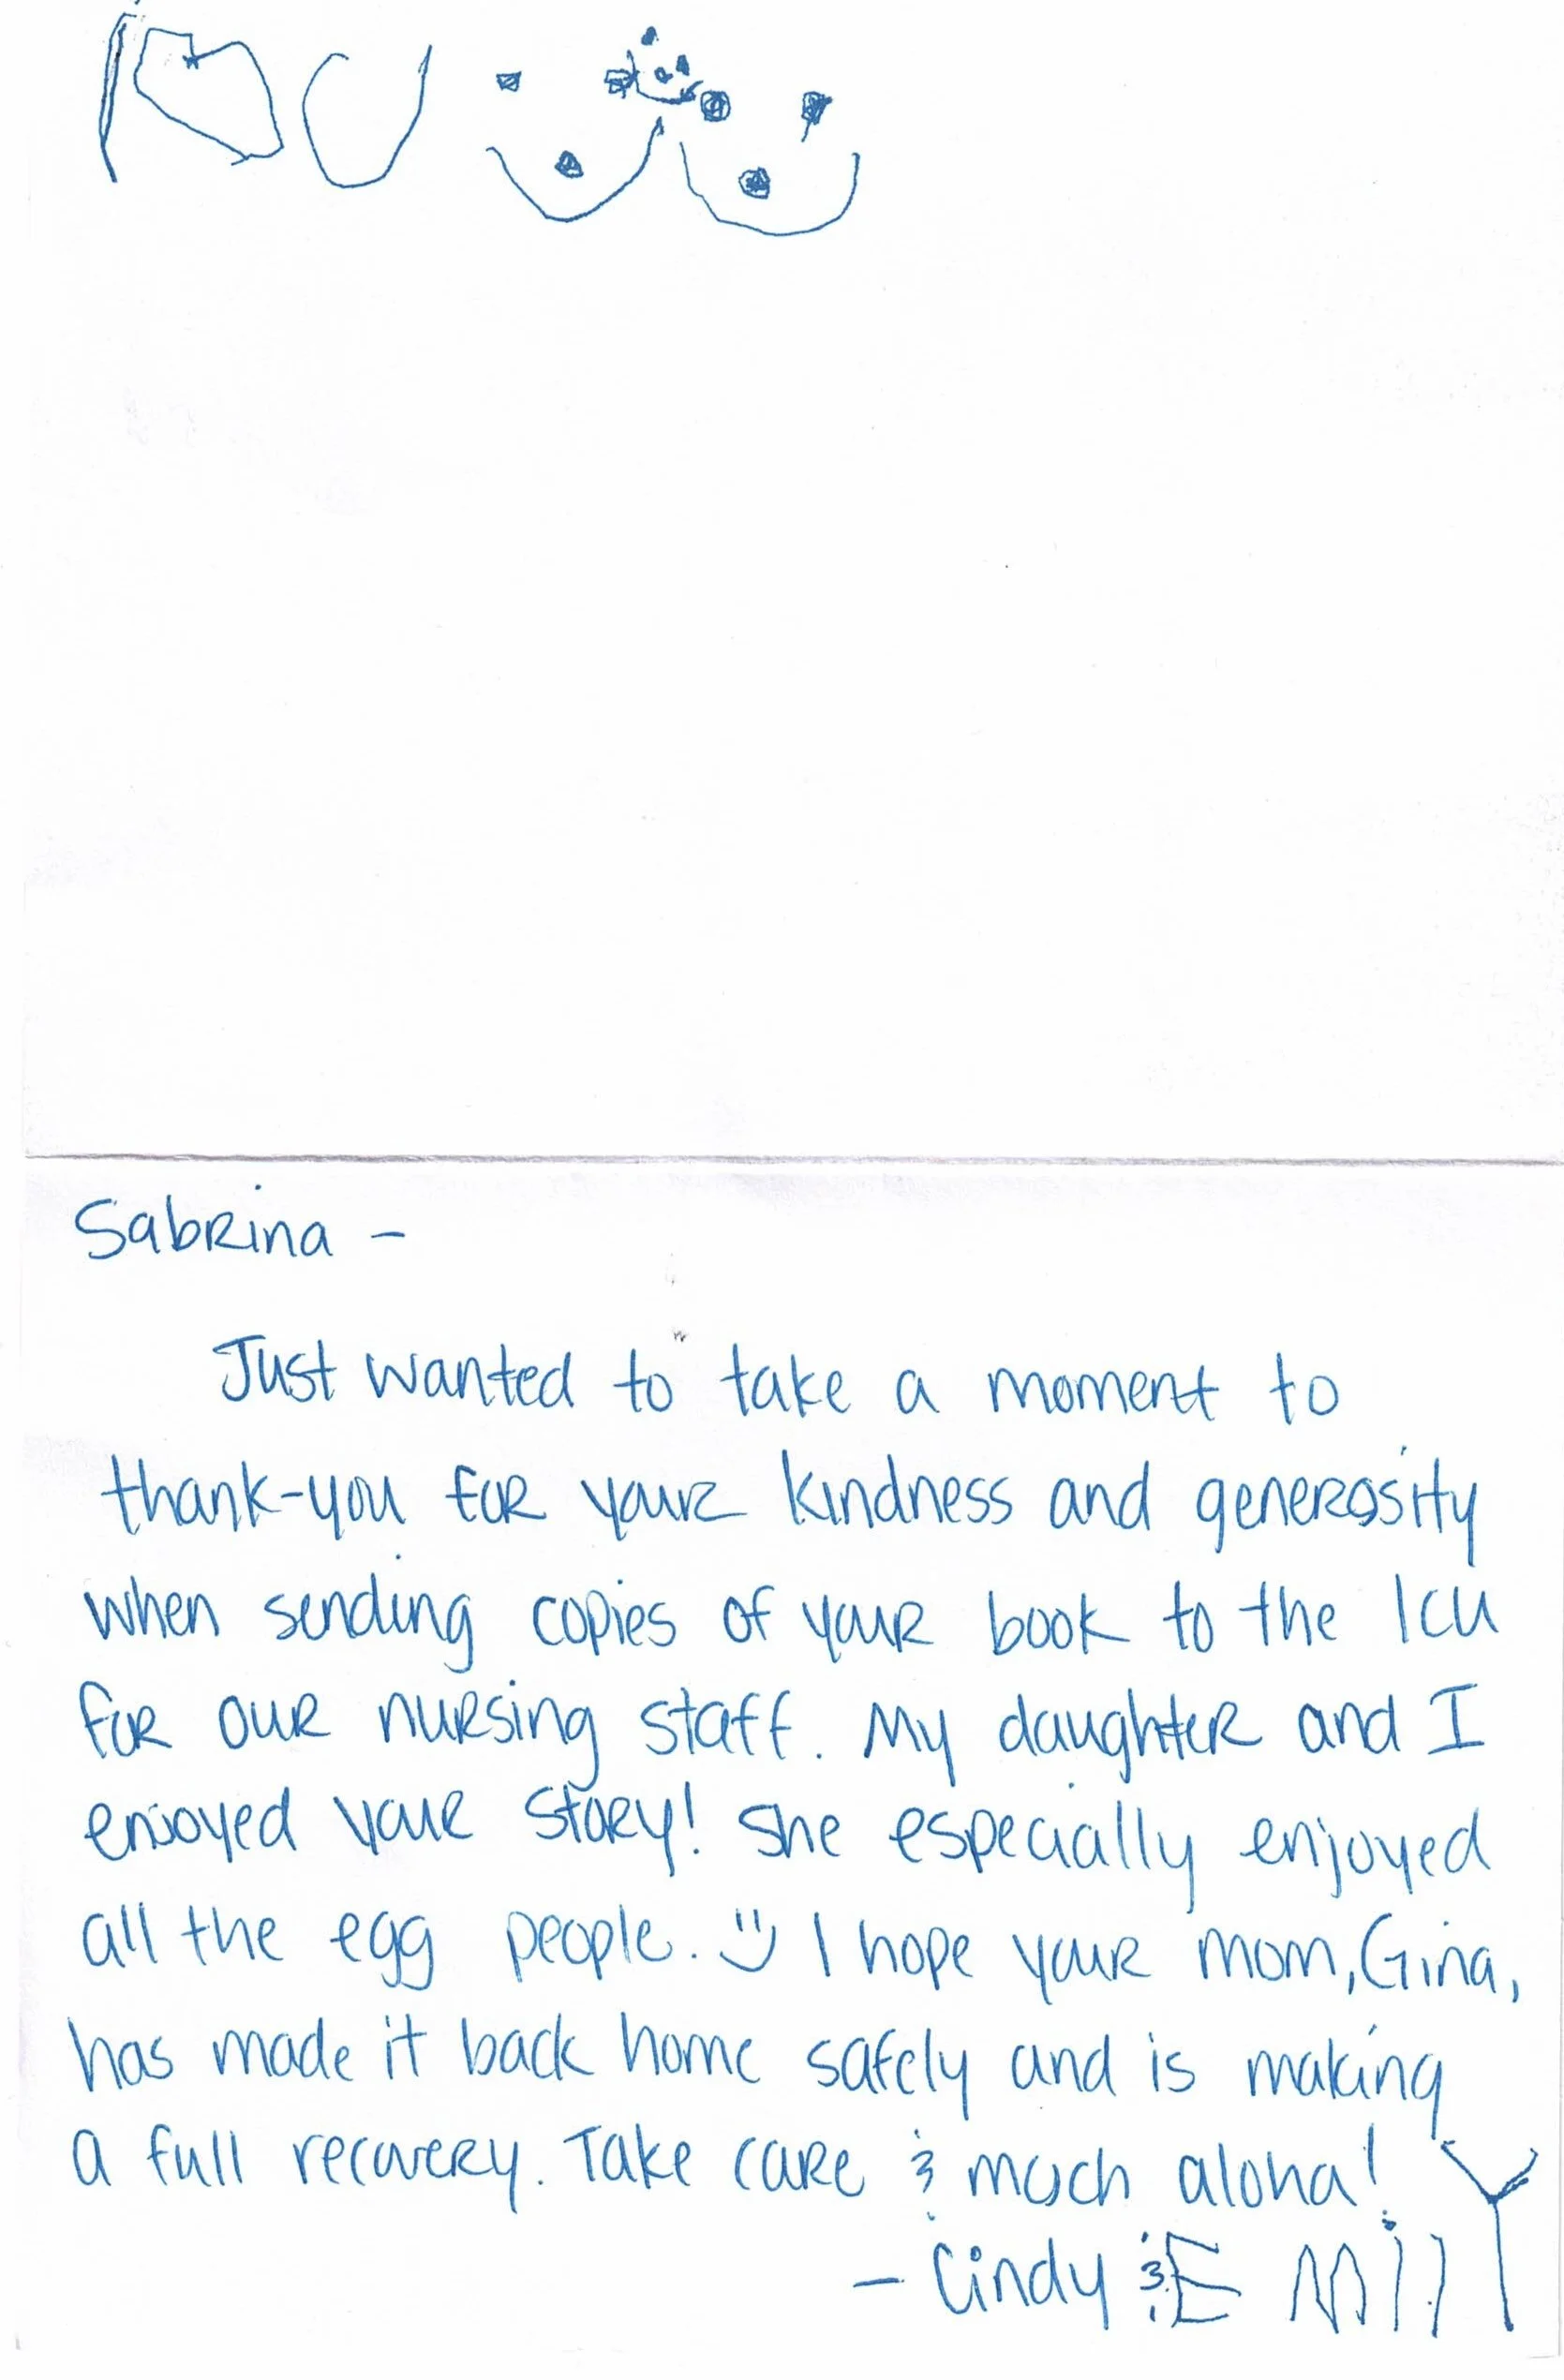 I ♡ U
Sabrina -
Just wanted to take a moment to
thank-you for your kindness and generosity
when sending copies of your book to the ICU
for our nursing staff. My daughter and I
enjoyed your story! She especially enjoyed
all the egg people. :) I hope your mom, Gina,
has made it back home safely and is making
a full recovery. Take care & much aloha!
- Cindy & EmilY